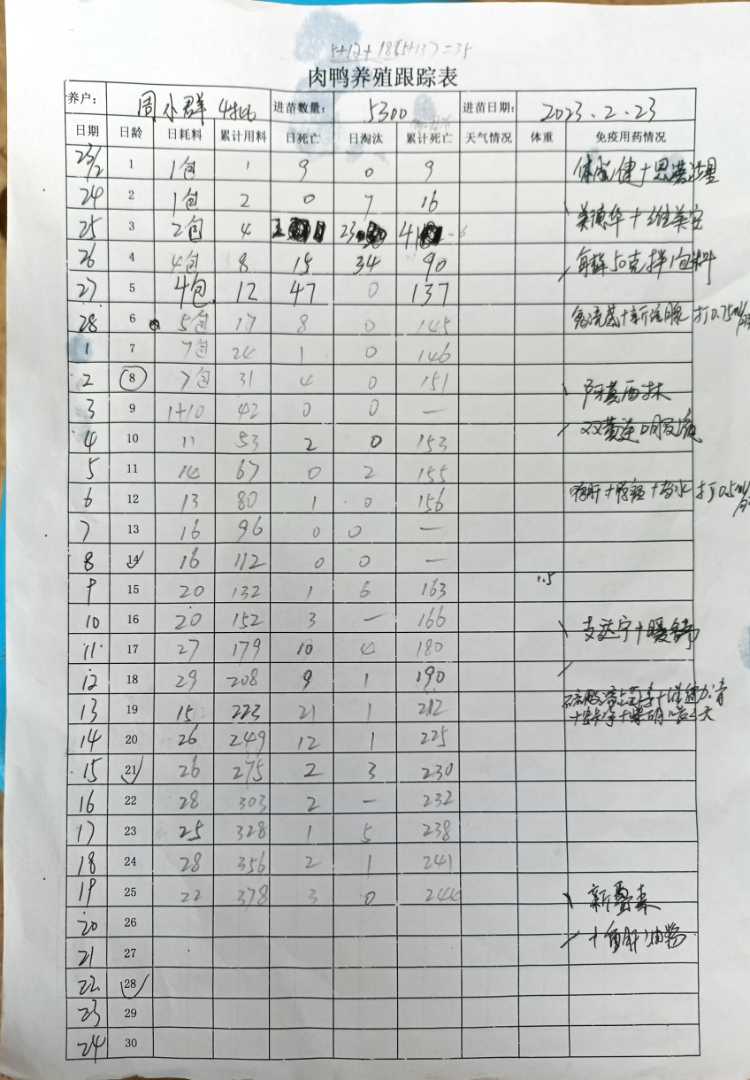 5+12+18(5+13)=35
肉鸭养殖跟踪表
养户: 周小群 4批 进苗数量: 5300 进苗日期: 2023.2.23
日期 日龄 日耗料 累计用料 日死亡 日淘汰 累计死亡 天气情况 体重 免疫用药情况
23/2 1 1包 1 9 0 9
24 2 1包 2 0 7 16
25 3 2包 4 23
26 4 4包 8 15 34 90 每群50克拌1包料
27 5 4包. 12 47 0 137
28 6 5包 17 8 0 145
1 7 7包 24 1 0 146
2 8 7包 31 4 0 151 阿莫西林
3 9 1+10 42 0 0 —
4 10 11 53 2 0 153
5 11 14 67 0 2 155
6 12 13 80 1 0 156
7 13 16 96 0 0 —
8 14 16 112 0 0 —
9 15 20 132 1 6 163 1.5
10 16 20 152 3 — 166
11 17 27 179 10 4 180
12 18 29 208 9 1 190
13 19 15 223 21 1 212
14 20 26 249 12 1 225
15 21 26 275 2 3 230
16 22 28 303 2 — 232
17 23 25 328 1 5 238
18 24 28 356 2 1 241
19 25 22 378 3 0 244
20 26
21 27
22 28
23 29
24 30